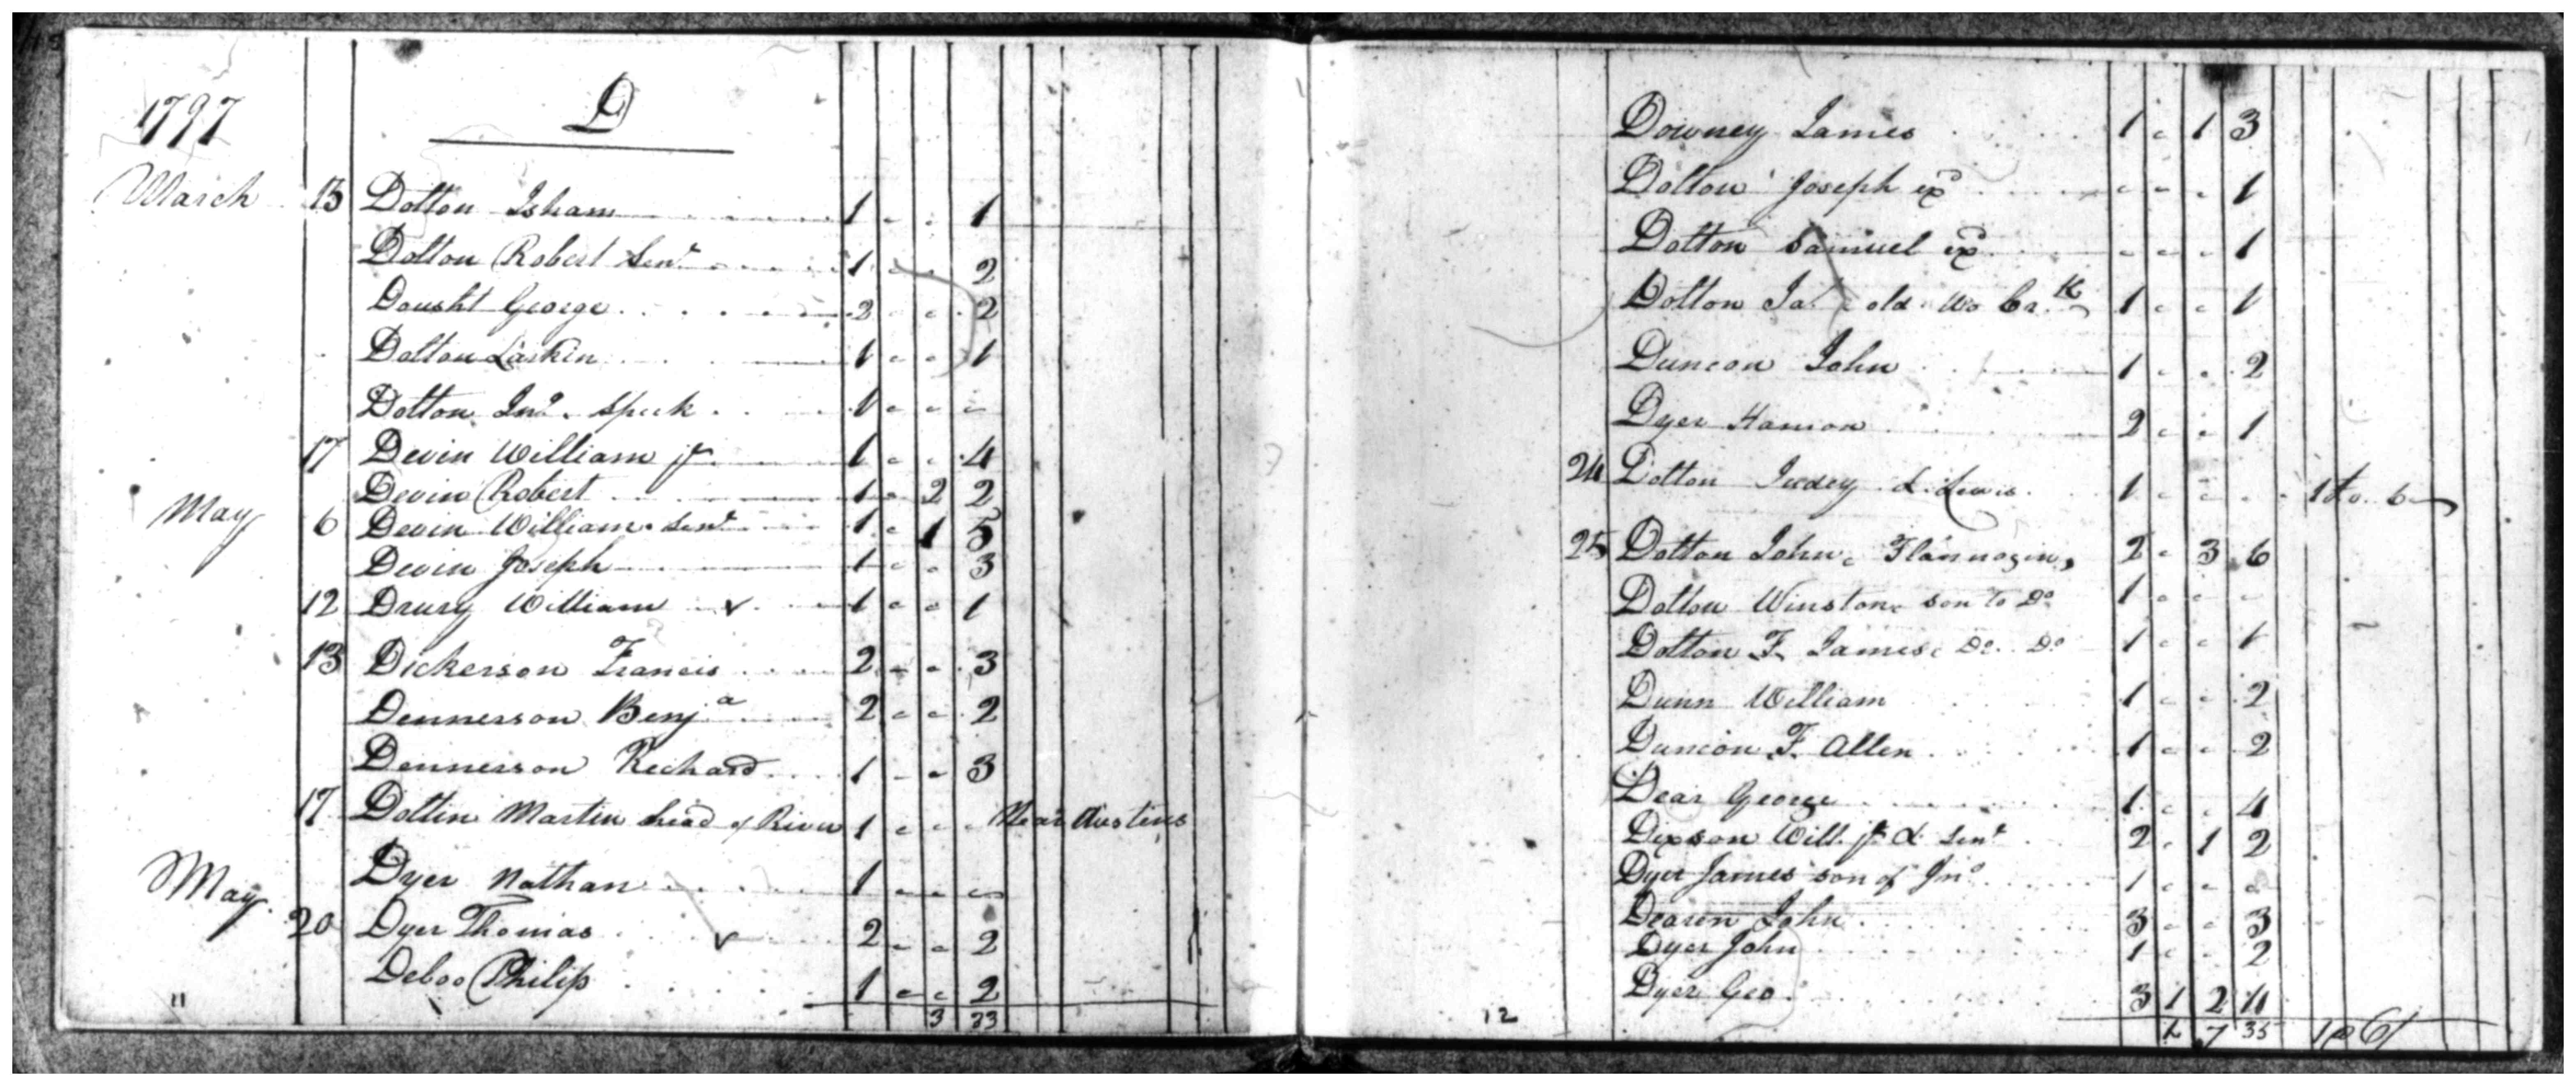 1797
D
March 13 Dolton Isham 1 - - 1
Dolton Robert Senr 1 - - 2
Dousht George 2 - - 2
Dolton Larkin 1 - - 1
Dolton Jno. Speck 1 - - -
17 Devin William jr 1 - - 4
Devin Robert 1 - 2 2
May 6 Devin William Senr 1 - 1 5
Devin Joseph 1 - - 3
12 Drury William v 1 - - 1
13 Dickerson Francis 2 - - 3
Dennerson Benja 2 - - 2
Dennerson Richard 1 - - 3
17 Dolten Martin head of River 1 - - - Near Austens
May Dyer Nathan 1 - - -
20 Dyer Thomas v 2 - - 2
Deboo Philip 1 - - 2
11 3 33
Downey James 1 - 1 3
Dolton Joseph exd - - - 1
Dolton Samuel exd - - - 1
Dolton Jas. old Wo Crk 1 - - 1
Duncon John 1 - - 2
Dyer Hamon 2 - - 1
24 Dolton Judey & Lewis 1 - - -
25 Dolton John, Flannagin, 2 - 3 6
Dolton Winston, son to Do 1 - - -
Dolton F. James, Do. Do 1 - - 1
Dunn William 1 - - 2
Duncon F. Allen 1 - - 2
Dear George 1 - - 4
Dixson Will. jr & Senr 2 - 1 2
Dyer James son of Jno 1 - - -
Dearen John 3 - - 3
Dyer John 1 - - 2
Dyer Geo. 3 1 2 4
12 1 7 35